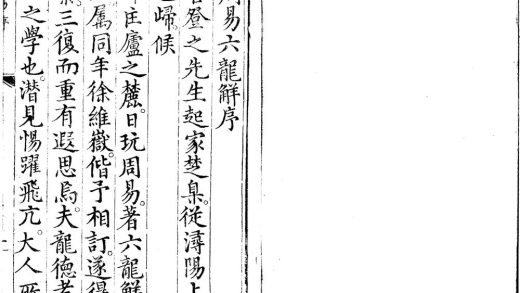 周易六龍觧序
登之先生起家楚臬。從潯陽上
歸。候
廬之麓。日玩周易。著六龍觧
属同年徐維嶽。偕予相訂。遂得
三復而重有遐思焉。夫龍德者
之學也。潛見惕躍飛亢。大人所